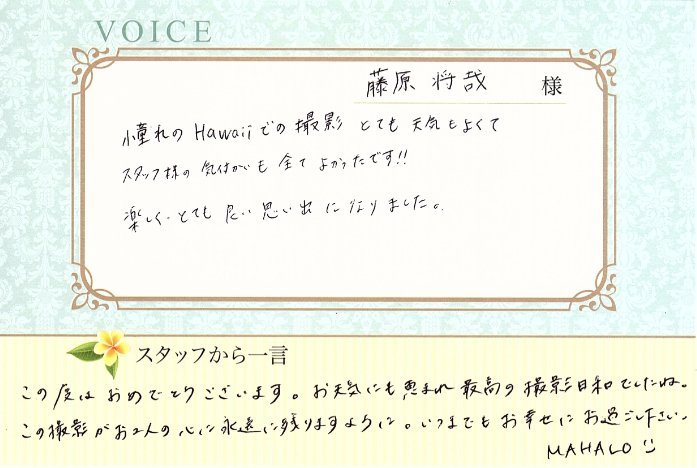 VOICE
藤原 将哉 様
憧れの Hawaiiでの撮影 とても 天気もよくて
スタッフ様の 気付かいも 全て よかったです!!
楽しく、とても 良い思い出 になりました。
スタッフから一言
この度は おめでとうございます。お天気にも 恵まれ 最高の 撮影日和でしたね。
この撮影が お2人の 心に 永遠に残りますように。いつまでも お幸せに お過ごし下さい。
MAHALO